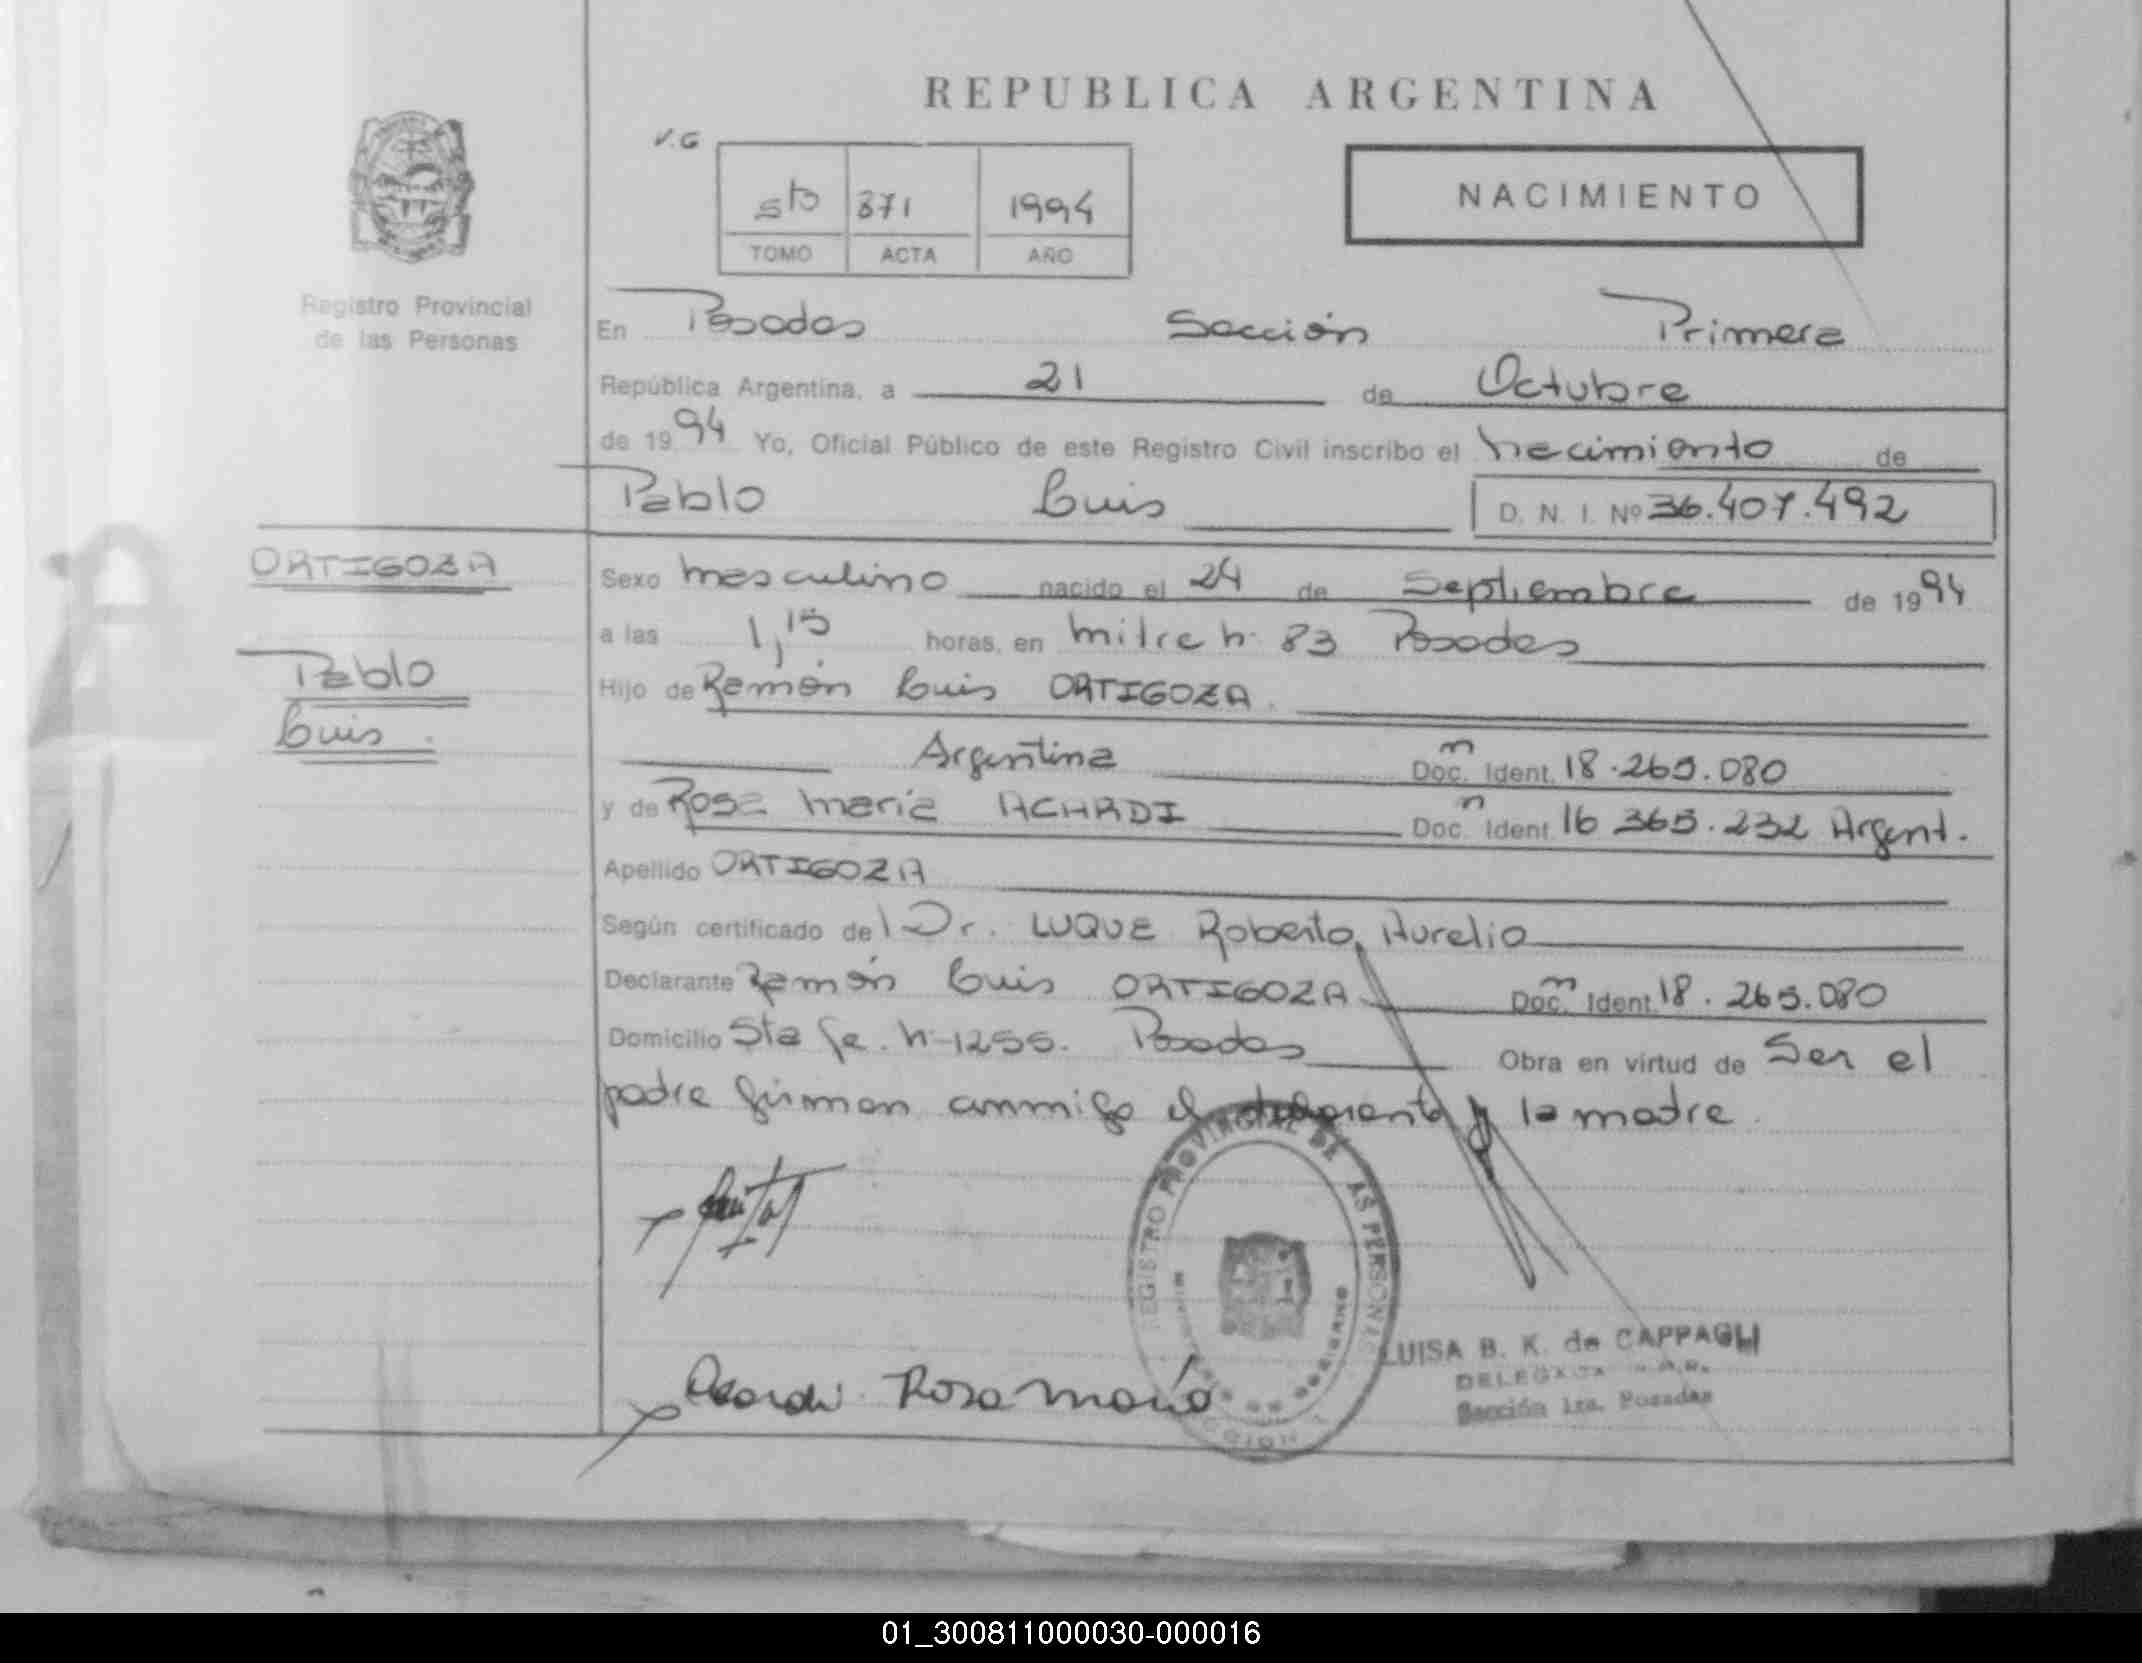 REPUBLICA ARGENTINA
V.G
5to 371 1994
TOMO ACTA AÑO
NACIMIENTO
Registro Provincial
de las Personas
En Posadas Sección Primera
República Argentina, a 21 de Octubre
de 1994 Yo, Oficial Público de este Registro Civil inscribo el nacimiento de
Pablo Luis D. N. I. Nº 36.407.492
ORTIGOZA
Pablo
Luis.
Sexo masculino nacido el 24 de Septiembre de 1994
a las 1,15 horas, en mitre n. 83 Posadas
Hijo de Ramón Luis ORTIGOZA.
Argentina Doc. Ident. m 18.265.080
y de Rosa María ACARDI Doc. Ident. n 16 365.232 Argent.
Apellido ORTIGOZA
Según certificado del Dr. LUQUE Roberto Aurelio
Declarante Ramón Luis ORTIGOZA Doc. Ident. m 18.265.080
Domicilio Sta fe. n-1255. Posadas Obra en virtud de Ser el
padre firman conmigo el declarante y la madre.
REGISTRO PROVINCIAL DE LAS PERSONAS
Acardi Rosa María
LUISA B. K. de CAPPAGLI
DELEGADA
Sección 1ra. Posadas
01_300811000030-000016